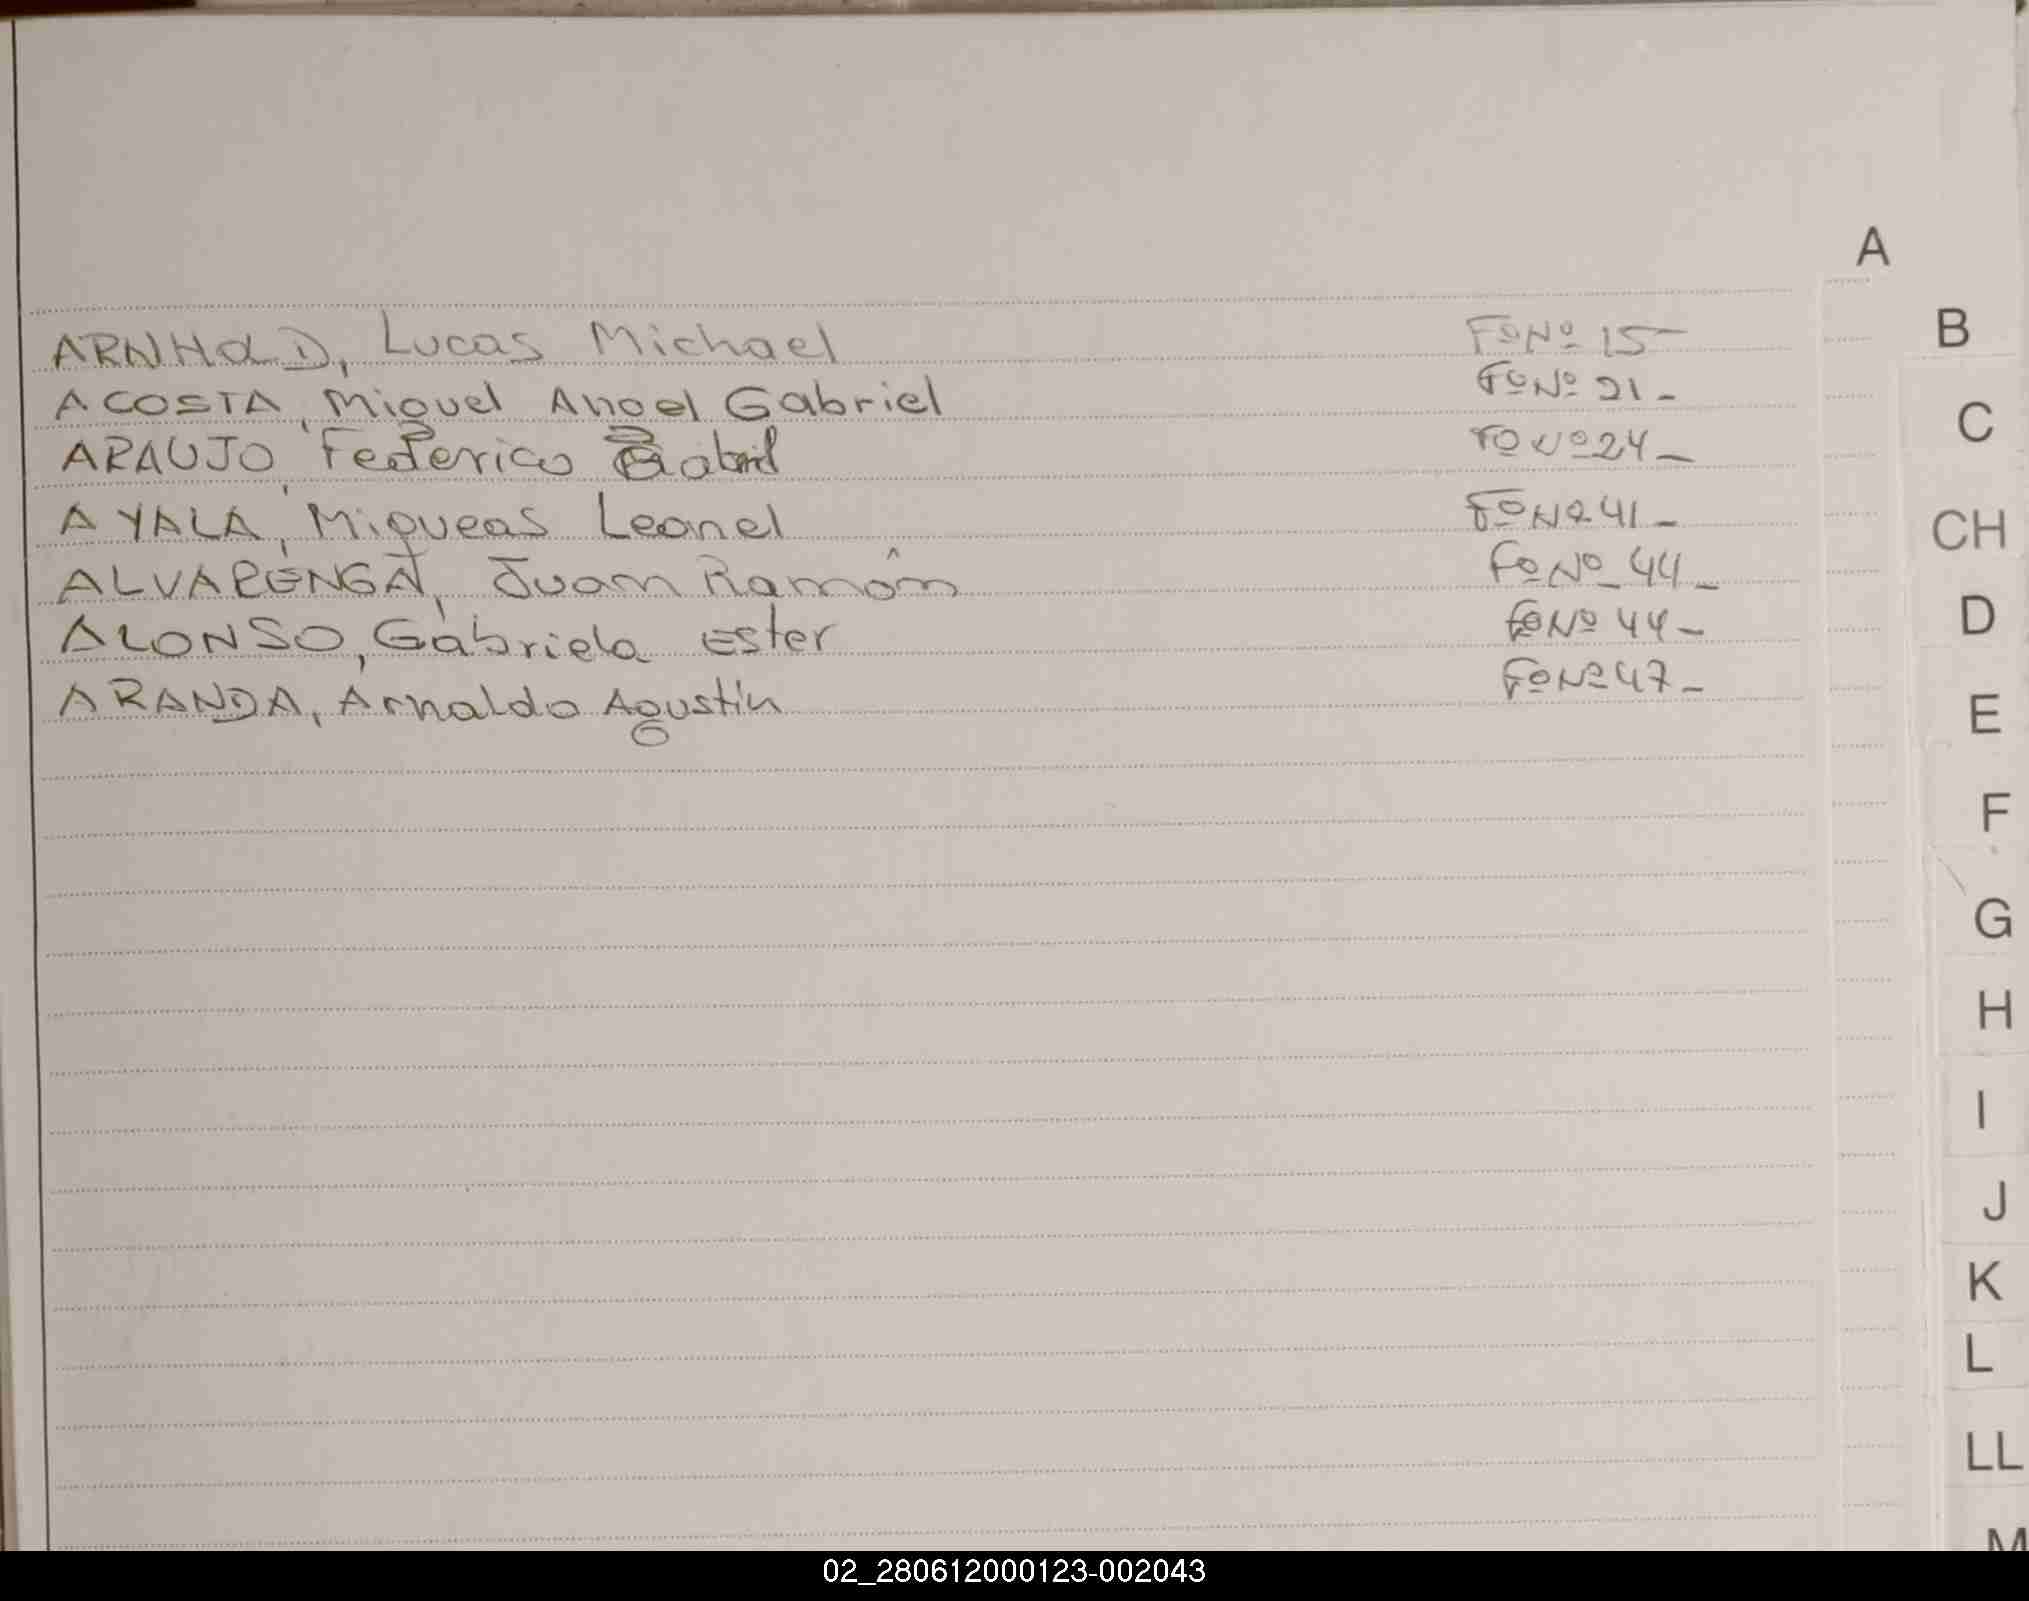 A
ARNHOLD, Lucas Michael Fº Nº 15
ACOSTA, Miguel Angel Gabriel Fº Nº 21-
ARAUJO, Federico Fº Nº 24-
AYALA, Miqueas Leonel Fº Nº 41-
ALVARENGA, Juan Ramón Fº Nº 44-
ALONSO, Gabriela Ester Fº Nº 44-
ARANDA, Arnaldo Agustín Fº Nº 47-
B
C
CH
D
E
F
G
H
I
J
K
L
LL
M
02_280612000123-002043